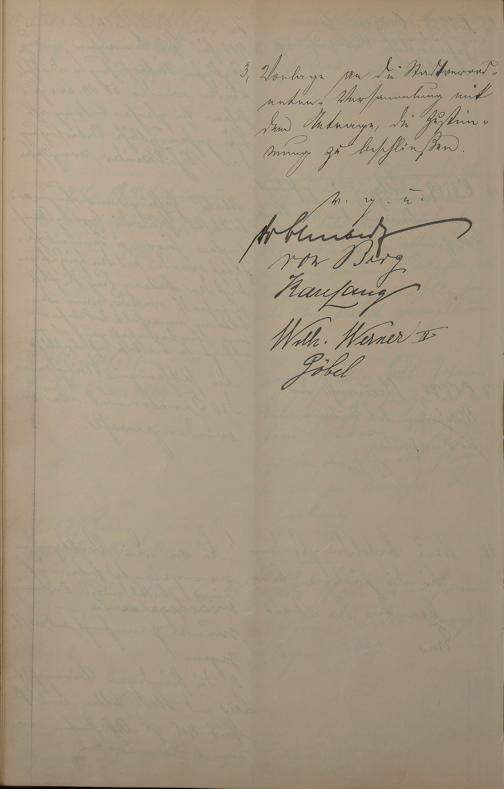 3, Vorlage an die Stadtverord-
neten-Versammlung mit
dem Antrage, die Zustim-
mung zu beschließen.
v. g. u.
von Berg
Karl Lang
Wilh. Werner II
Göbel